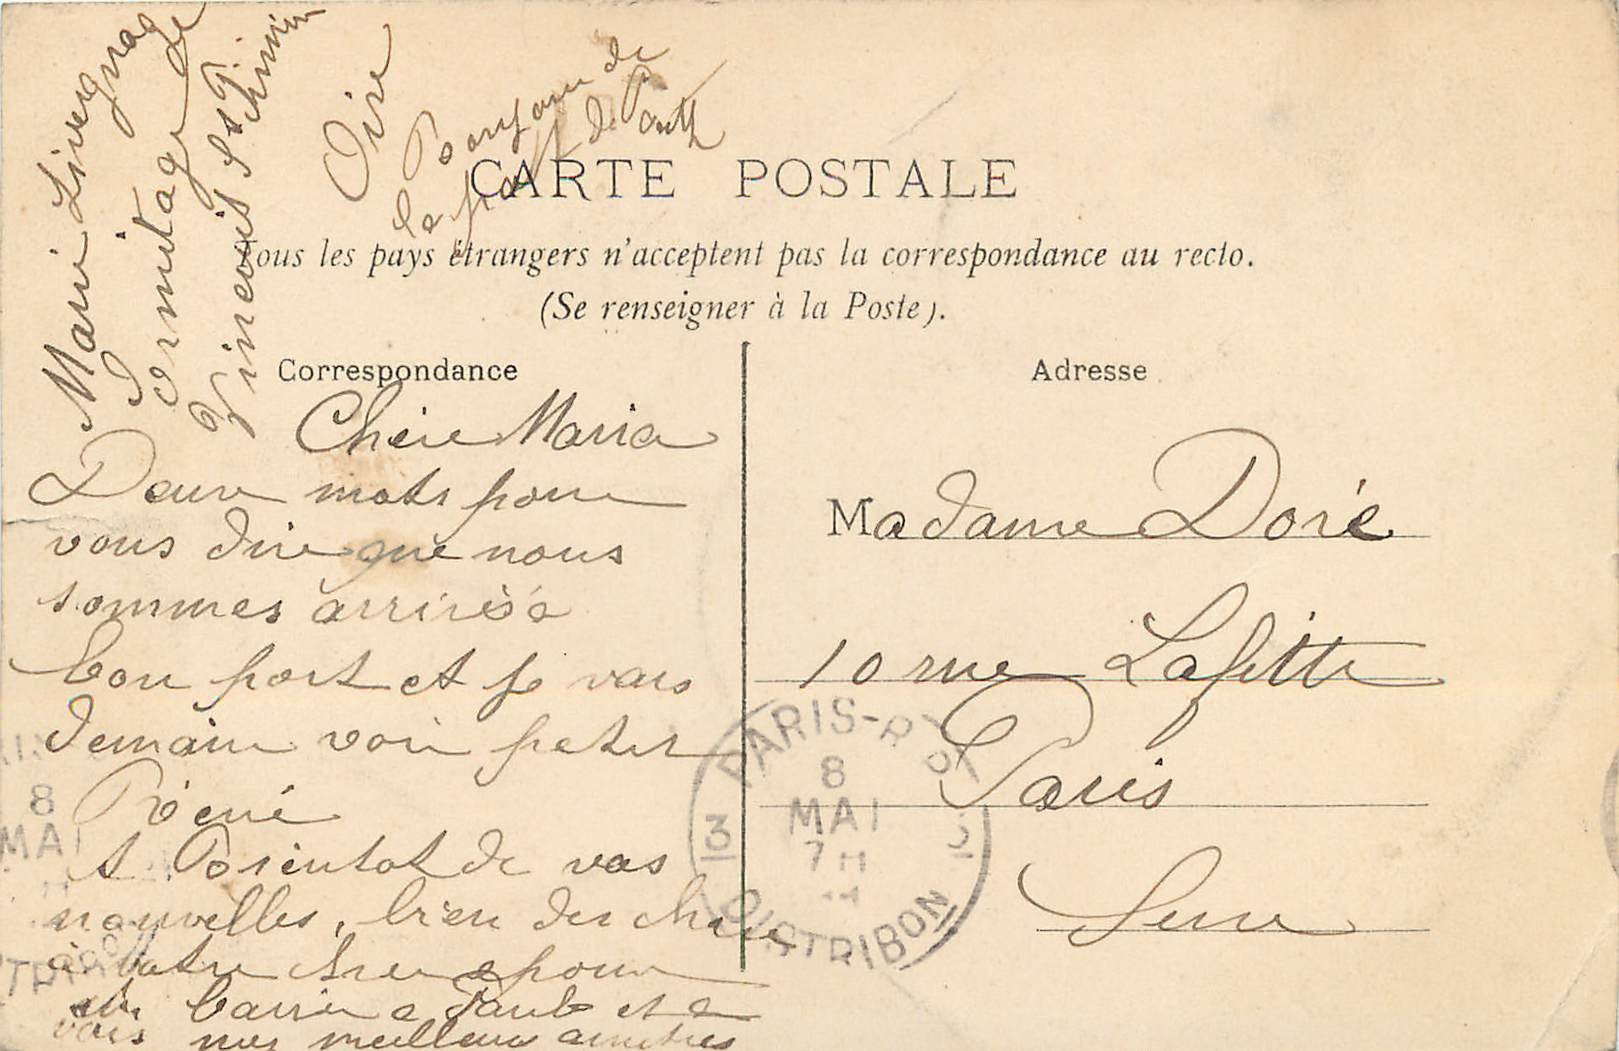 Marie Livergnage
Ermitage de
Vineuil St Firmin
Oise
le Bonjour de
la part de
CARTE POSTALE
Tous les pays étrangers n'acceptent pas la correspondance au recto.
(Se renseigner à la Poste).
Correspondance
Adresse
Chère Maria
Deux mots pour
vous dire que nous
sommes arrivés a
bon port et je vais
demain voir petit
Réné
A Bientot de vos
nouvelles, bien des choses
à votre pour
un a Paul et a
vous mes meilleurs amitiés
Madame Doré
10 rue Lafitte
Paris
Seine
PARIS-R P
8
MAI
7 H
3
DISTRIBON
8
MAI